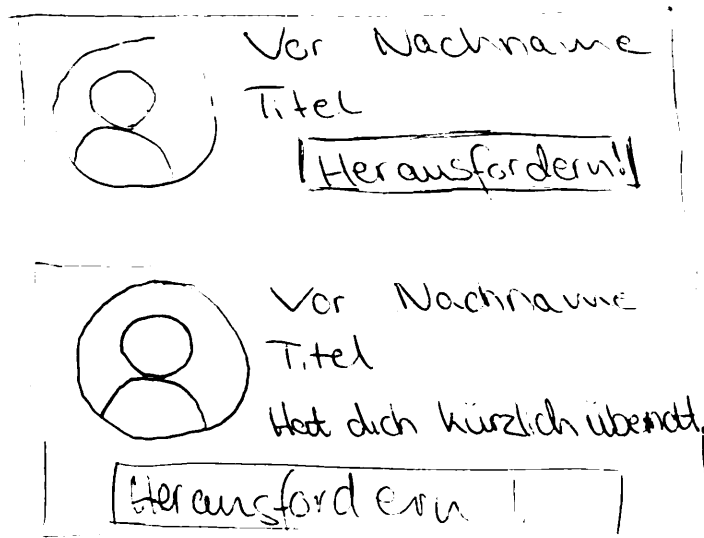 Vor Nachname
Titel
Herausfordern!
Vor Nachname
Titel
Hat dich kürzlich
Herausfordern!